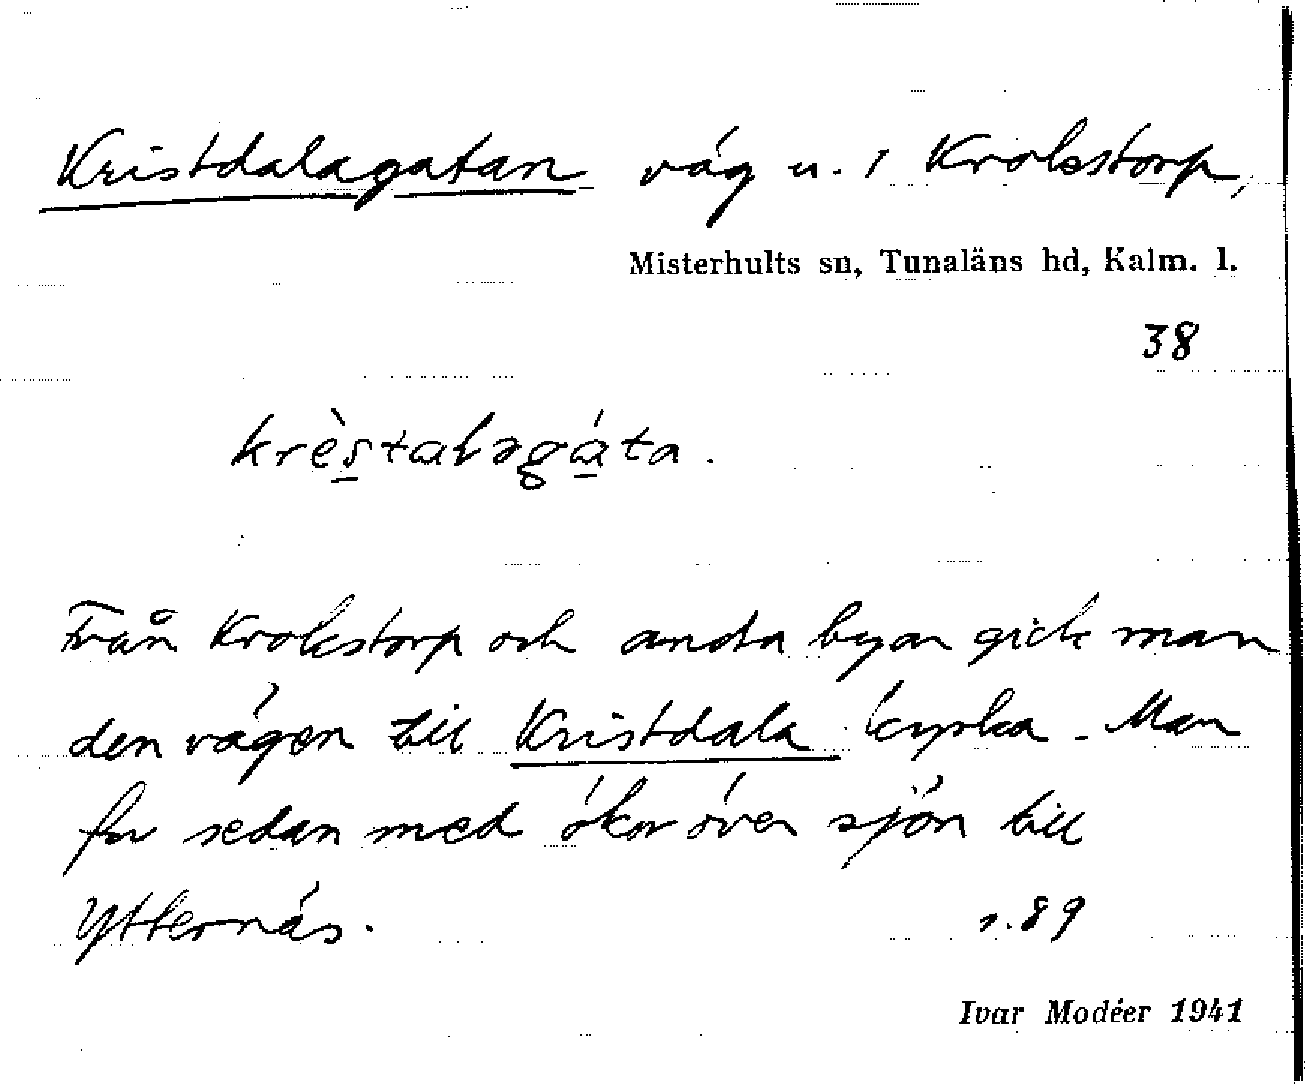 Kristdalagatan väg u. 1 Krokstorp,
Misterhults sn, Tunaläns hd, Kalm. l.
38
krès̱talagá̱ta.
Från Krokstorp och andra byar gick man
den vägen till Kristdala kyrka. Man
for sedan med ökor över sjön till
Ytternäs.
s. 89
Ivar Modéer 1941